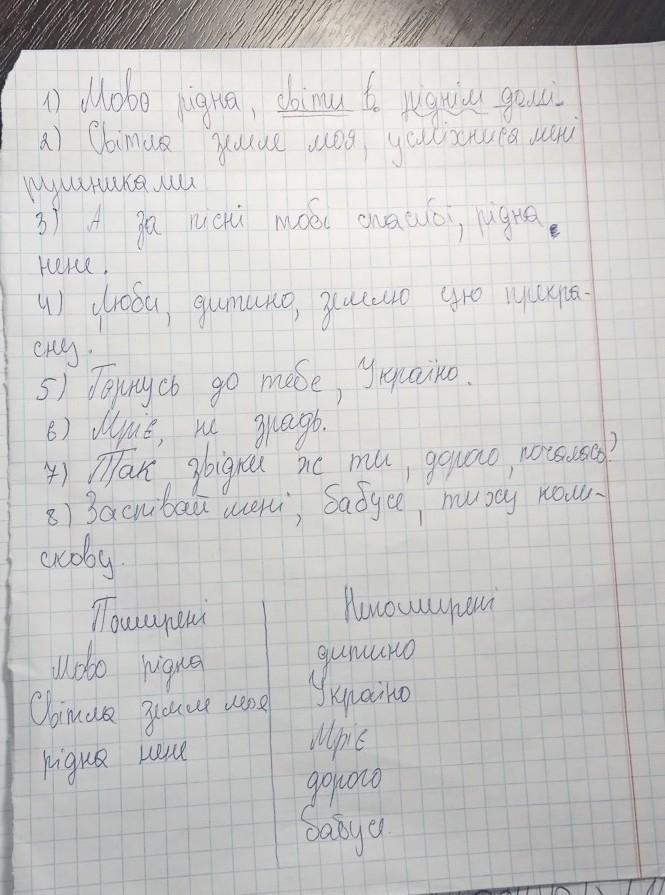 1) Мово рідна, світи в ріднім домі.
2) Світла земле моя, усміхнися мені
рушниками
3) А за пісні тобі спасибі, рідна
нене.
4) Люби, дитино, землю цю прекра-
сну.
5) Горнусь до тебе, Україно.
6) Мріє, не зрадь.
7) Так звідки ж ти, дорого, почалась?
8) Заспівай мені, бабусе, тиху коли-
скову.
Поширені Непоширені
Мово рідна дитино
Світла земле моя Україно
рідна нене Мріє
дорого
бабусе.